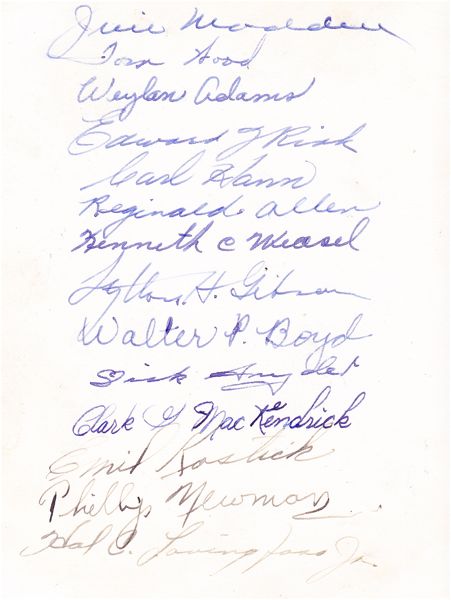 Madden
Tom Hood
Weylan Adams
Edward J Rink
Carl Hann
Reginald Allen
Kenneth C Weasel
Lytton H. Gibson
Walter P. Boyd
Dick Snyder
Clark G MacKendrick
Emil Kostick
Phillip Newman
Hal C. Jr.